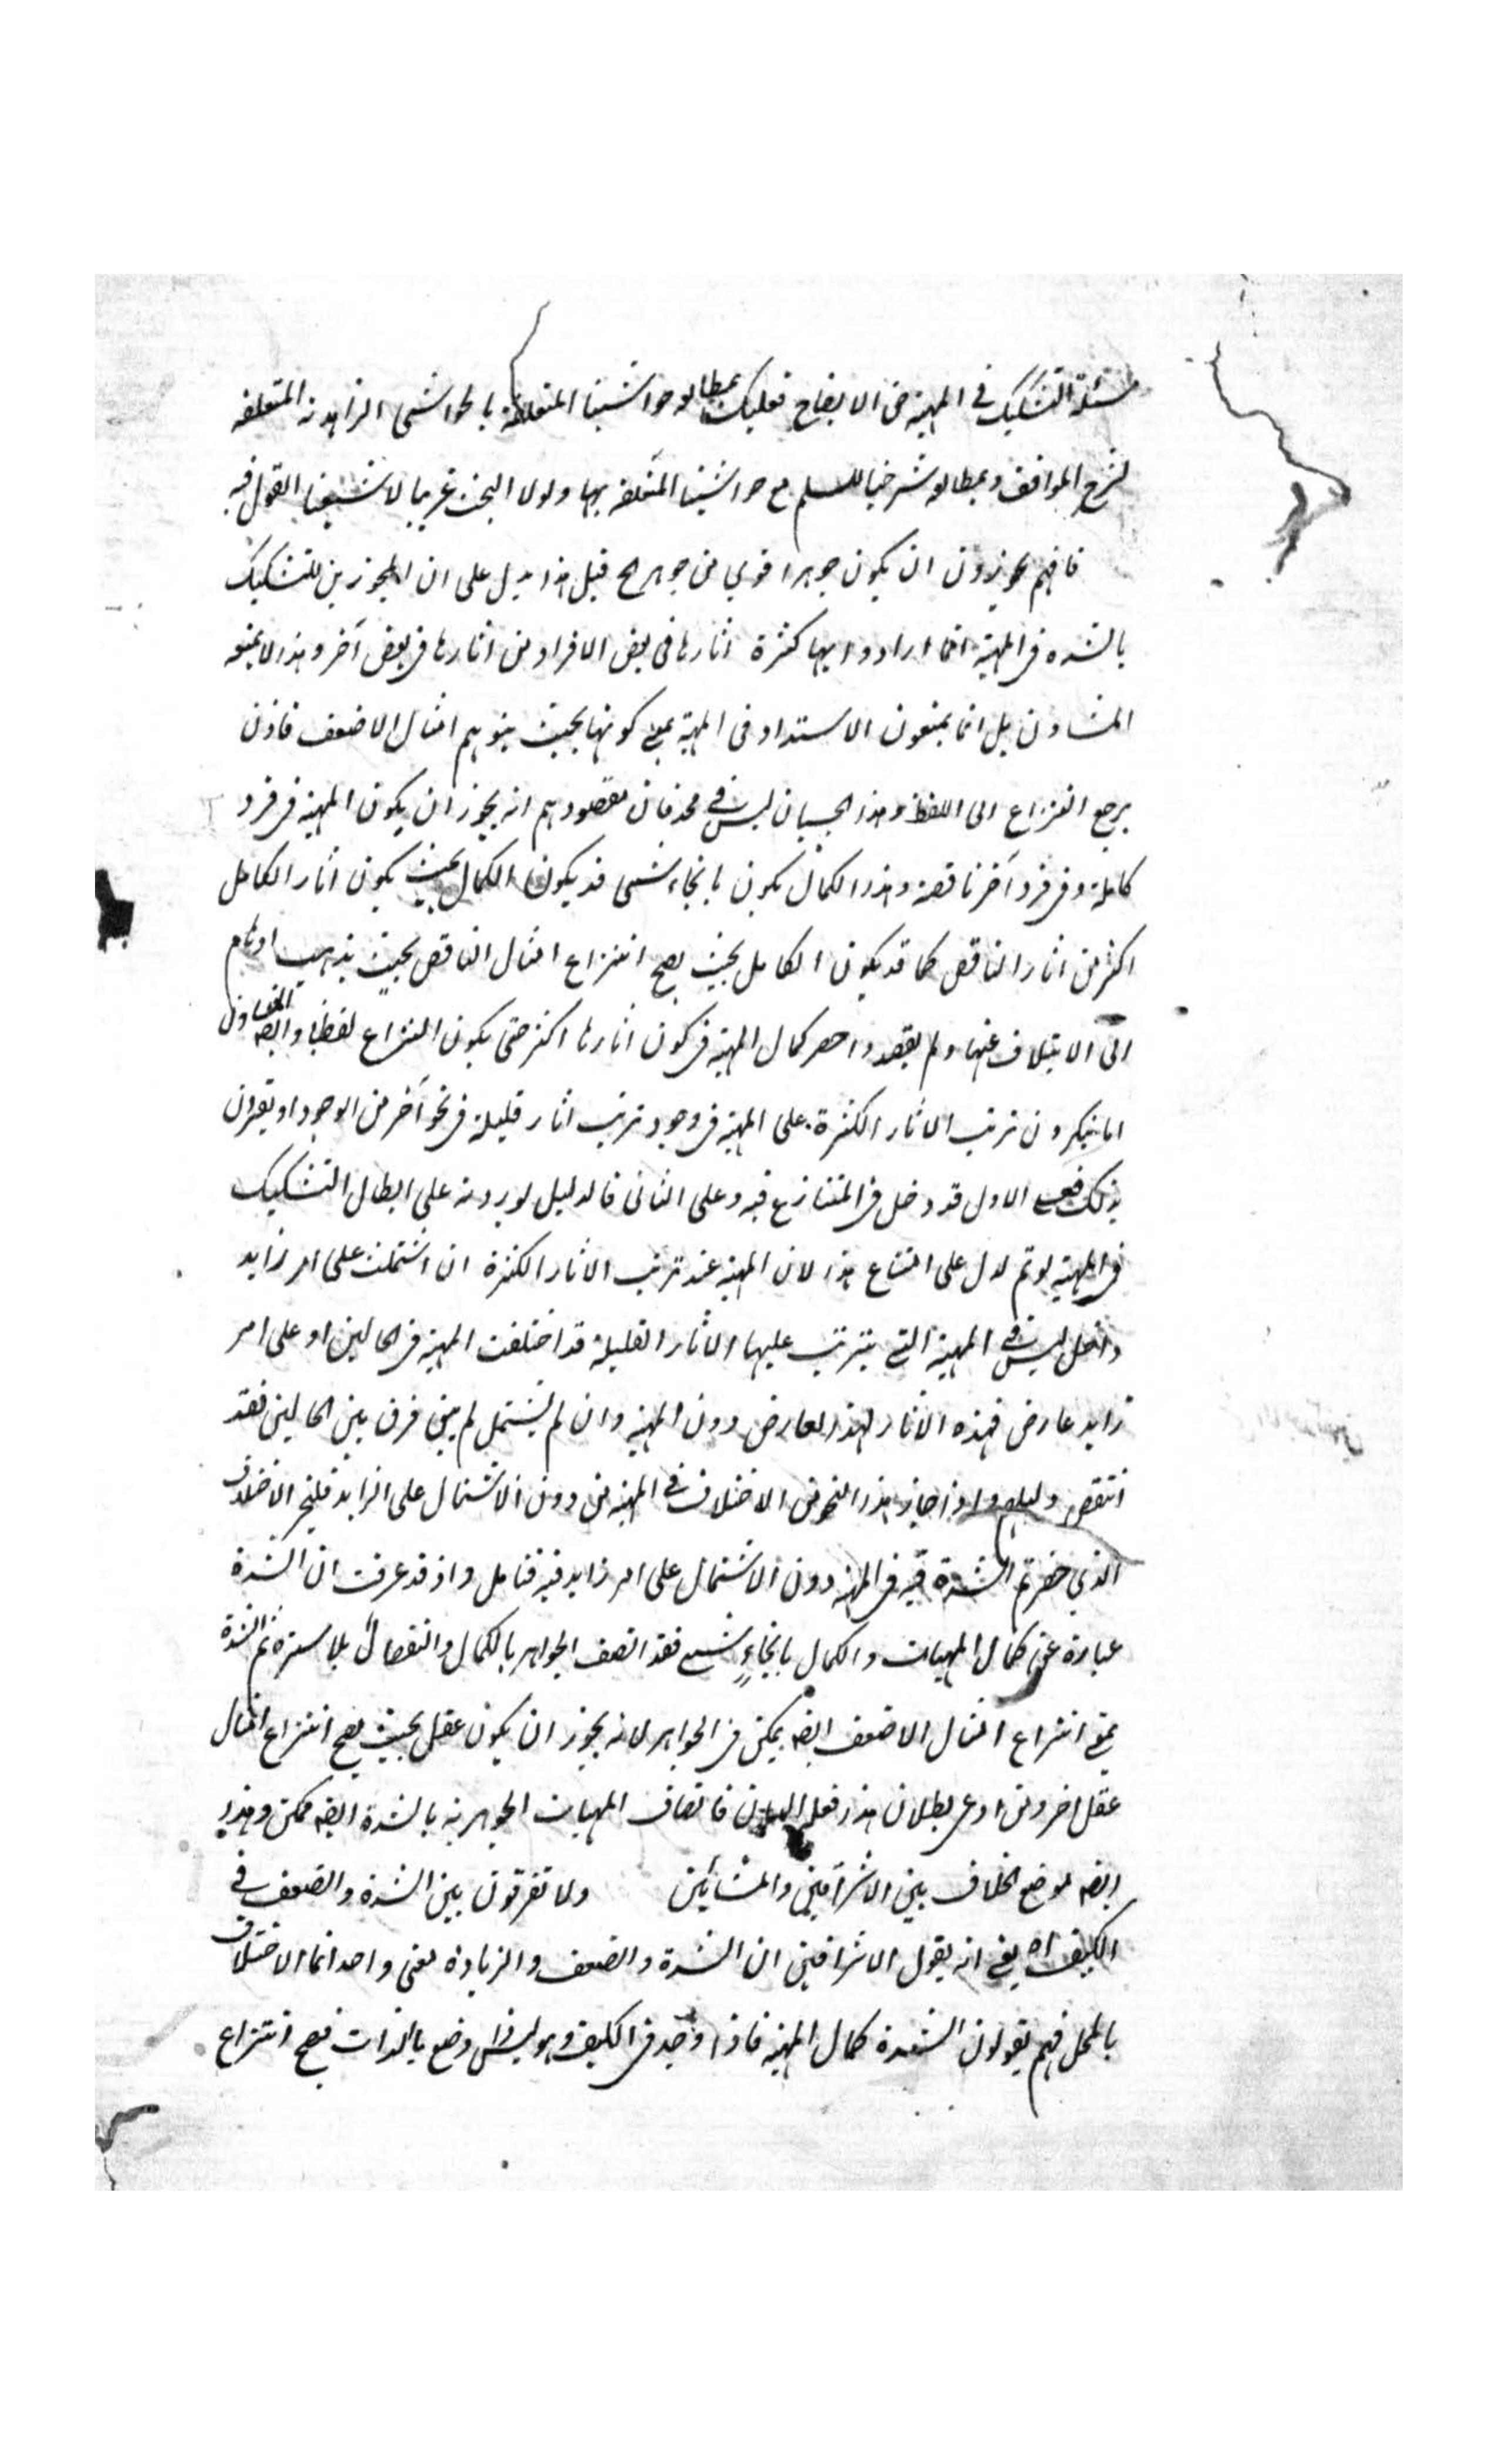 مسئلة التشكيك في المهية من الايضاح فعليك بمطالعة حواشينا المتعلقة بالحواشى الزاهدية المتعلقة
لشرح المواقف وبمطالعة شرحنا للسلم مع حواشينا المتعلقة بها ولولا البحث غريبا لاشبعنا القول فيه
فانهم يجوزون ان يكون جوهر اقوي من جوهر الخ قيل هذا يدل على ان المجوزين للتشكيك
بالشدة في المهية انما ارادوا بها كثرة اثارها في بعض الافراد من اثارها في بعض آخر وهذا لا يمنعه
المشاؤن بل انما يمنعون الاشتداد في المهية بمعنى كونها بحيث يتوهم امثال الاضعف فاذن
يرجع النزاع الى اللفظ وهذا الحسبان ليس في محله فان مقصودهم انه يجوز ان يكون المهية في فرد
كاملة وفي فرد آخر ناقصة وهذا الكمال يكون بانحاء شتى قد يكون الكمال بحيث يكون اثار الكامل
اكثر من اثار الناقص كما قد يكون الكامل بحيث يصح انتزاع امثال الناقص بحيث يذهب اوهام
الى الايتلاف عنها ولم يقصدوا حصر كمال المهية في كون اثارها اكثر حتى يكون النزاع لفظيا وايضا المشاؤن
اما ينكرون ترتب الاثار الكثيرة على المهية في وجود ترتب اثار قليلة في نحو آخر من الوجود او يقرون
بذلك فعلى الاول قد دخل في المتنازع فيه وعلى الثاني فالدليل لو يردونه على ابطال التشكيك
في المهية لو تم لدل على امتناع هذا لان المهية عند ترتب الاثار الكثيرة ان اشتملت على امر زايد
داخل ليس في المهية التي يترتب عليها الاثار القليلة قد اختلفت المهية في الحالين او على امر
زايد عارض فهذه الاثار لهذا العارض دون المهية وان لم يشتمل لم يبق فرق بين الحالين فقد
انتقض دليلهم واذا جاز هذا النحو من الاختلاف في المهية من دون الاشتمال على الزايد فليجز الاختلاف
الذي خصرتم الشدة فيه في المهية دون الاشتمال على امر زايد فيه فتامل واذ قد عرفت ان الشدة
عبارة عن كمال المهيات والكمال بانحاء شتى فقد اتصف الجواهر بالكمال والنقصان بلا سترة ثم الشدة
بمعنى انتزاع امثال الاضعف ايضا يمكن في الجواهر لانه يجوز ان يكون عقل بحيث يصح انتزاع امثال
عقل اخر ومن ادعى بطلان هذا فعليه البيان فاتصاف المهيات الجوهرية بالشدة ايضا ممكن وهذا
ايضا موضع الخلاف بين الاشراقيين والمشائين ولا تفرقون بين الشدة والضعف في
الكيف اه يعني انه يقول الاشراقيين ان الشدة والضعف والزيادة معنى واحد انما الاختلاف
بالمحل فهم يقولون الشدة كمال المهية فاذا وجد في الكيف وهو ليس ذا وضع بالذات فيصح انتزاع